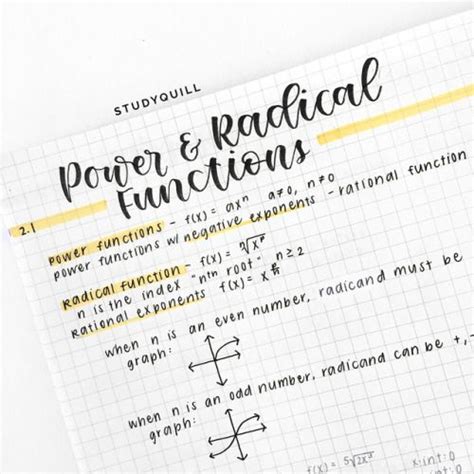 STUDYQUILL
Power & Radical
Functions
2.1
power functions - f(x) = axⁿ a≠0, n≠0
power functions w/ negative exponents - rational function
Radical function - f(x) = ⁿ√xᵖ
n is the index "nᵗʰ root" n≥2
Rational exponents f(x) = x^(p/n)
when n is an even number, radicand must be
graph:
when n is an odd number, radicand can be +,-
graph:
f(x) = 5√2x³
x-int: 0